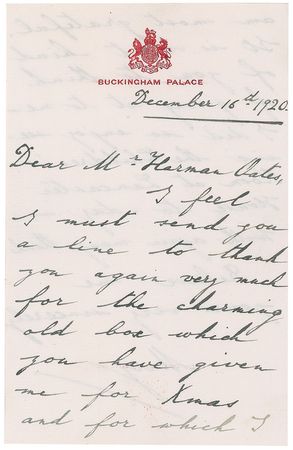 BUCKINGHAM PALACE
December 16th 1920.
Dear Mr Harman Oates,
I feel
I must send you
a line to thank
you again very much
for the charming
old box which
you have given
me for Xmas
and for which I